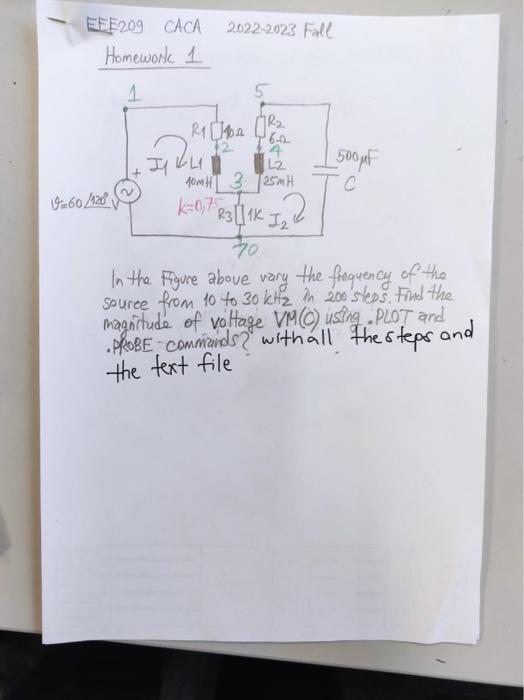 EEE209 CACA 2022-2023 Fall
Homework 1
1
5
R1 10Ω
R2
6Ω
2
4
I1
L1
L2
500μF
10mH
3
25mH
C
+
V=60/120° V
k=0,75
R3
1K
I2
0
In the Figure above vary the frequency of the
source from 10 to 30 kHz in 200 steps. Find the
magnitude of voltage VM(C) using .PLOT and
.PROBE commands? with all the steps and
the text file